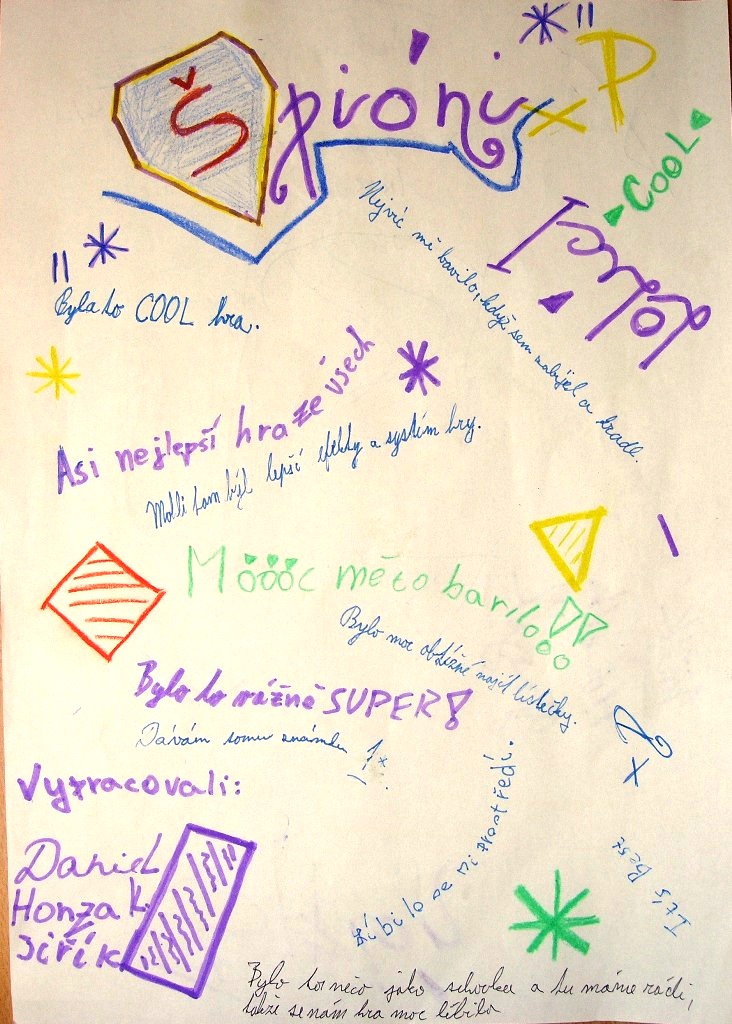 Špióni
xP
COOL
lol!
Nejvíc mě bavilo, když sem zabíjel a krade.
Byla to COOL hra.
Asi nejlepší hra ze všech
Mohli tam být lepší efekty a systém hry.
Móóóc mě to bavilooo!!
Bylo moc obtížné najít lístečky.
Bylo to vážně SUPER!
Dávám tomu známku 1*.
Líbilo se mi prostředí.
It's Best
Vypracovali:
Daniel
Honza K.
Jiřík
Bylo to něco jako schovka a tu máme rádi,
takže se nám hra moc líbila